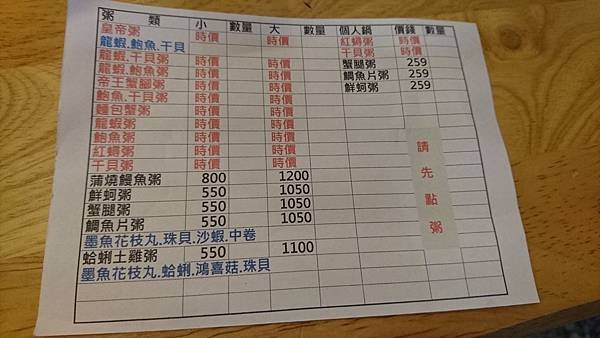 粥 類 小 數量 大 數量 個人鍋 價錢 數量
皇帝粥 時價 時價 紅蟳粥 時價
龍蝦.鮑魚.干貝 干貝粥 時價
龍蝦.干貝粥 時價 時價 蟹腿粥 259
龍蝦.鮑魚粥 時價 時價 鯛魚片粥 259
帝王蟹腳粥 時價 時價 鮮蚵粥 259
鮑魚.干貝粥 時價 時價
麵包蟹粥 時價 時價
龍蝦粥 時價 時價
鮑魚粥 時價 時價
紅蟳粥 時價 時價
干貝粥 時價 時價
蒲燒鰻魚粥 800 1200
鮮蚵粥 550 1050
蟹腿粥 550 1050
鯛魚片粥 550 1050
墨魚花枝丸.珠貝.沙蝦.中卷
蛤蜊土雞粥 550 1100
墨魚花枝丸.蛤蜊.鴻喜菇.珠貝
請先點粥